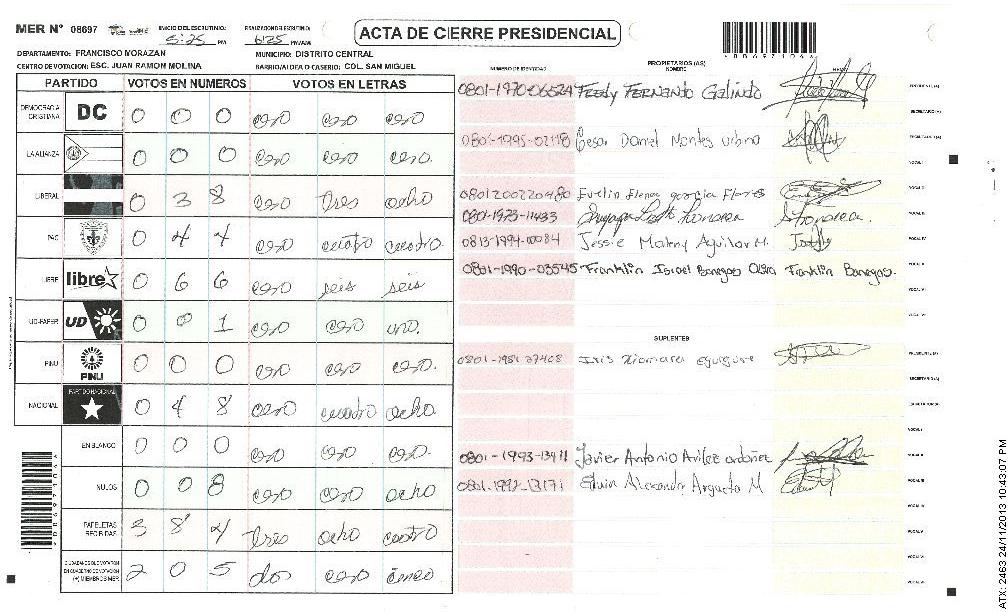 MER N° 08697 INICIO DEL ESCRUTINIO: 5:25 PM FINALIZACION DEL ESCRUTINIO: 6:25 PM/AM
ACTA DE CIERRE PRESIDENCIAL
DEPARTAMENTO: FRANCISCO MORAZAN MUNICIPIO: DISTRITO CENTRAL
CENTRO DE VOTACION: ESC. JUAN RAMON MOLINA BARRIO/ALDEA O CASERIO: COL. SAN MIGUEL
PARTIDO VOTOS EN NUMEROS VOTOS EN LETRAS
DEMOCRACIA CRISTIANA DC 0 0 0 cero cero cero
LA ALIANZA 0 0 0 cero cero cero.
LIBERAL 0 3 8 cero tres ocho
PAC 0 4 4 cero cuatro cuatro.
LIBRE libre 0 6 6 cero seis seis
UD-FAPER UD 0 0 1 cero cero uno.
PINU PINU 0 0 0 cero cero cero.
NACIONAL PARTIDO NACIONAL 0 4 8 cero cuatro ocho
EN BLANCO 0 0 0 cero cero cero.
NULOS 0 0 8 cero cero ocho
PAPELETAS RECIBIDAS 3 8 4 tres ocho cuatro
CIUDADANOS QUE VOTARON EN CUADERNO DE VOTACION (+) MIEMBROS MER 2 0 5 dos cero cinco
NUMERO DE IDENTIDAD PROPIETARIOS (AS) NOMBRE FIRMA
0801-1970-06524 Fredy Fernando Galindo PRESIDENTE (A)
SECRETARIO (A)
0801-1995-02118 Cesar Daniel Montes urbina ESCRUTADOR (A)
VOCAL I
0801200220480 Evelin Elena garcia Flores VOCAL II
0801-1973-11433 VOCAL III
0813-1994-00084 Jessie Maleny Aguilar M. VOCAL IV
VOCAL V
0801-1990-03545 Franklin Israel Banegas Oliva Franklin Banegas.
VOCAL VI
VOCAL VII
SUPLENTES
0801-1981-27408 Iris Xiomara eguigure PRESIDENTE (A)
SECRETARIO (A)
ESCRUTADOR (A)
VOCAL I
0801-1993-13411 Javier Antonio Avilez ordoñez VOCAL II
0801-1992-13171 Edwin Alexander Argueta M VOCAL III
VOCAL IV
VOCAL V
VOCAL VI
VOCAL VII
ATX: 2463 24/11/2013 10:43:07 PM